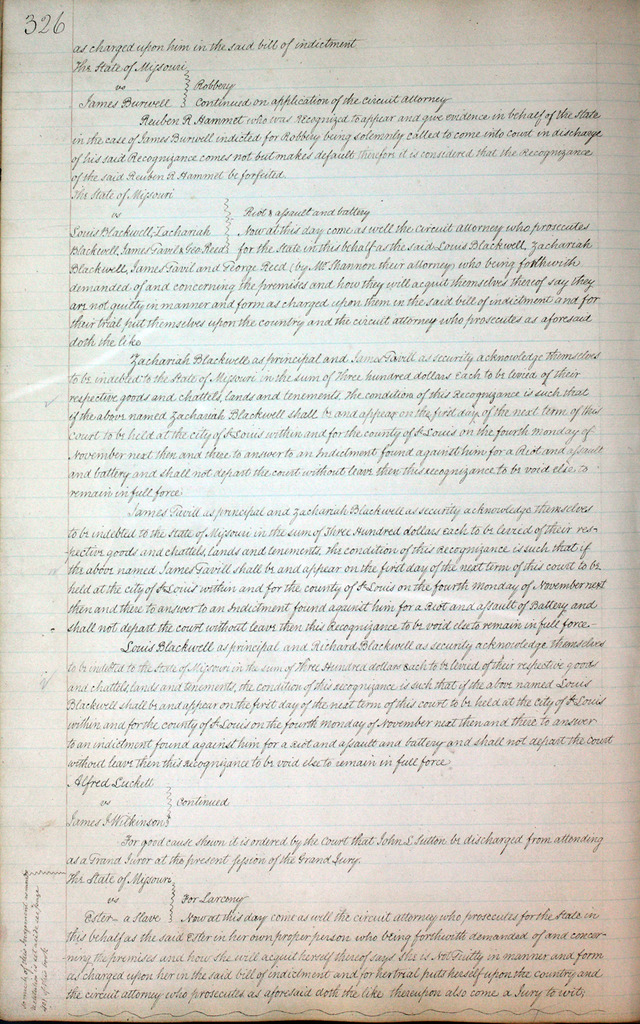 326
as charged upon him in the said bill of indictment
The State of Missouri
vs } Robbery
James Burwell } Continued on application of the circuit attorney
Reuben R Hammet who was Recognized to appear and give evidence in behalf of the State
in the case of James Burwell indicted for Robbery being solemnly called to come into Court in discharge
of his said Recognizance comes not but makes default therefore it is considered that the Recognizance
of the said Reuben R Hammet be forfeited
The State of Missouri
vs } Riot & assault and battery
Louis Blackwell, Zachariah } Now at this day come as well the Circuit attorney who prosecutes
Blackwell, James Tavil & Geo Reed } for the State in this behalf as the said Louis Blackwell, Zachariah
Blackwell, James Tavil and George Reed (by Mr Shannon their attorney) who being forthwith
demanded of and concerning the premises and how they will acquit themselves thereof say they
are not guilty in manner and form as charged upon them in the said bill of indictment and for
their trial put themselves upon the country and the circuit attorney who prosecutes as aforesaid
doth the like
Zachariah Blackwell as principal and James Tavill as security acknowledge themselves
to be indebted to the State of Missouri in the sum of Three hundred dollars Each to be levied of their
respective goods and chattels, lands and tenements The condition of this Recognizance is such that
if the above named Zachariah Blackwell shall be and appear on the first day of the next term of this
court to be held at the city of St Louis within and for the county of St Louis on the fourth monday of
November next then and there to answer to an Indictment found against him for a Riot and assault
and battery and shall not depart the court without leave then this recognizance to be void else to
remain in full force
James Tavill as principal and Zachariah Blackwell as security acknowledge themselves
to be indebted to the State of Missouri in the sum of Three Hundred dollars Each to be levied of their res-
pective goods and chattels, lands and tenements, the condition of this Recognizance is such that if
the above named James Tavill shall be and appear on the first day of the next term of this court to be
held at the city of St Louis within and for the county of St Louis on the fourth Monday of November next
then and there to answer to an Indictment found against him for a Riot and assault of Battery and
shall not depart the court without leave then this Recognizance to be void else to remain in full force-
Louis Blackwell as principal and Richard Blackwell as security acknowledge themselves
to be indebted to the State of Missouri in the sum of Three Hundred dollars Each to be levied of their respective goods
and chattels, lands and tenements, the condition of this recognizance is such that if the above named Louis
Blackwell shall be and appear on the first day of the next term of this court to be held at the city of St Louis
within and for the county of St Louis on the fourth Monday of November next then and there to answer
to an indictment found against him for a Riot and assault and battery and shall not depart the court
without leave then this Recognizance to be void else to remain in full force
Alfred Luckett
vs } Continued
James J Wilkinson }
For good cause shewn it is ordered by the Court that John L Sutton be discharged from attending
as a Grand Juror at the present session of the Grand Jury.
The State of Missouri
vs } For Larceny
Ester - a Slave } Now at this day come as well the circuit attorney who prosecutes for the State in
this behalf as the said Ester in her own proper person who being forthwith demanded of and concer-
ning the premises and how she will acquit herself thereof says she is Not Guilty in manner and form
as charged upon her in the said bill of indictment and for her trial puts herself upon the country and
the circuit attorney who prosecutes as aforesaid doth the like thereupon also come a Jury to wit;
so much of this
of this book